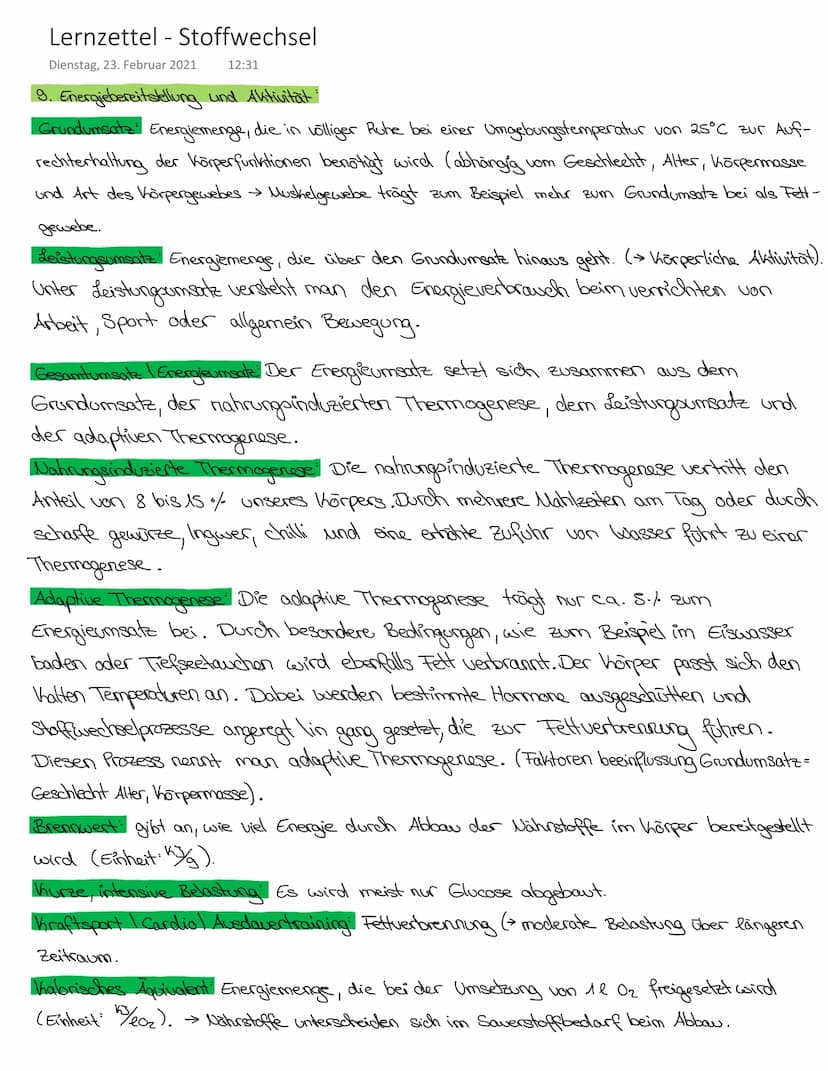 Lernzettel - Stoffwechsel
Dienstag, 23. Februar 2021 12:31
9. Energiebereitstellung und Aktivität:
Grundumsatz: Energiemenge, die in völliger Ruhe bei einer Umgebungstemperatur von 25°C zur Auf-
rechterhaltung der Körperfunktionen benötigt wird (abhängig vom Geschlecht, Alter, Körpermasse
und Art des Körpergewebes → Muskelgewebe trägt zum Beispiel mehr zum Grundumsatz bei als Fett-
gewebe.
Leistungsumsatz: Energiemenge, die über den Grundumsatz hinaus geht. (→ Körperliche Aktivität).
Unter Leistungsumsatz versteht man den Energieverbrauch beim verrichten von
Arbeit, Sport oder allgemein Bewegung.
Gesamtumsatz | Energieumsatz: Der Energieumsatz setzt sich zusammen aus dem
Grundumsatz, der nahrungsinduzierten Thermogenese, dem Leistungsumsatz und
der adaptiven Thermogenese.
Nahrungsinduzierte Thermogenese: Die nahrungsinduzierte Thermogenese vertritt den
Anteil von 8 bis 15 % unseres Körpers. Durch mehrere Mahlzeiten am Tag oder durch
scharfe gewürze, Ingwer, chilli und eine erhöhte Zufuhr von Wasser führt zu einer
Thermogenese.
Adaptive Thermogenese: Die adaptive Thermogenese trägt nur ca. 5% zum
Energieumsatz bei. Durch besondere Bedingungen, wie zum Beispiel im Eiswasser
baden oder Tiefseetauchen wird ebenfalls Fett verbrannt. Der Körper passt sich den
kalten Temperaturen an. Dabei werden bestimmte Hormone ausgeschütten und
Stoffwechselprozesse angeregt \in gang gesetzt, die zur Fettverbrennung führen.
Diesen Prozess nennt man adaptive Thermogenese. (Faktoren beeinflussung Grundumsatz =
Geschlecht Alter, Körpermasse).
Brennwert: gibt an, wie viel Energie durch Abbau der Nährstoffe im Körper bereitgestellt
wird (Einheit: KJ/g).
Kurze, intensive Belastung: Es wird meist nur Glucose abgebaut.
Kraftsport | Cardio | Ausdauertraining: Fettverbrennung (→ moderate Belastung über längeren
Zeitraum.
Kalorisches Äquivalent: Energiemenge, die bei der Umsetzung von 1l O₂ freigesetzt wird
(Einheit: KJ/lO₂). → Nährstoffe unterscheiden sich im Sauerstoffbedarf beim Abbau.